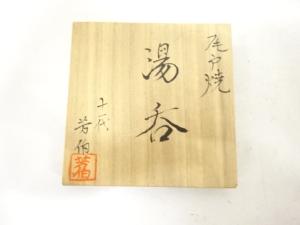 尾戸焼
湯呑
十代
芳伯
芳伯